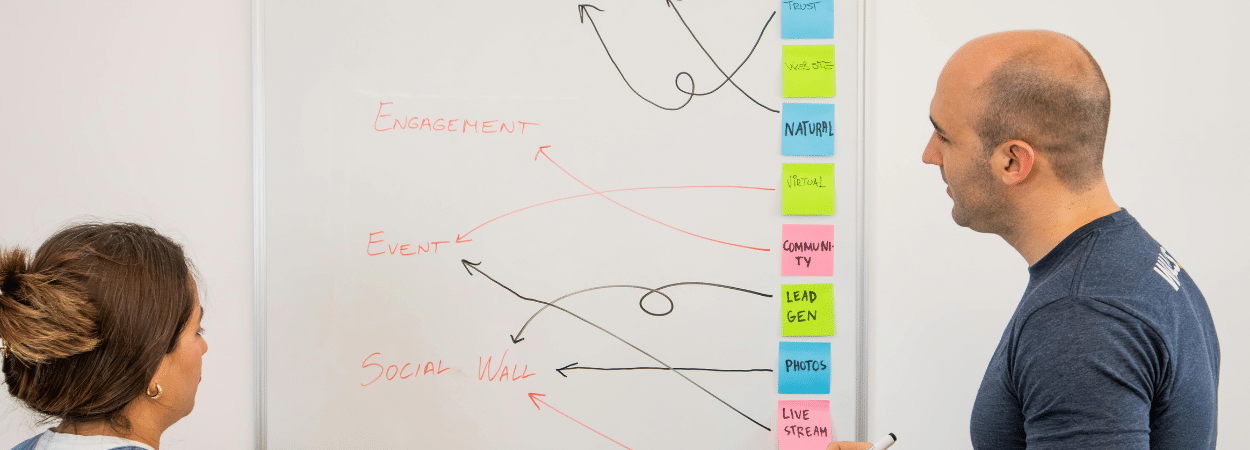 TRUST
WEBSITE
ENGAGEMENT
NATURAL
VIRTUAL
EVENT
COMMUNI-
TY
LEAD
GEN
SOCIAL WALL
PHOTOS
LIVE
STREAM